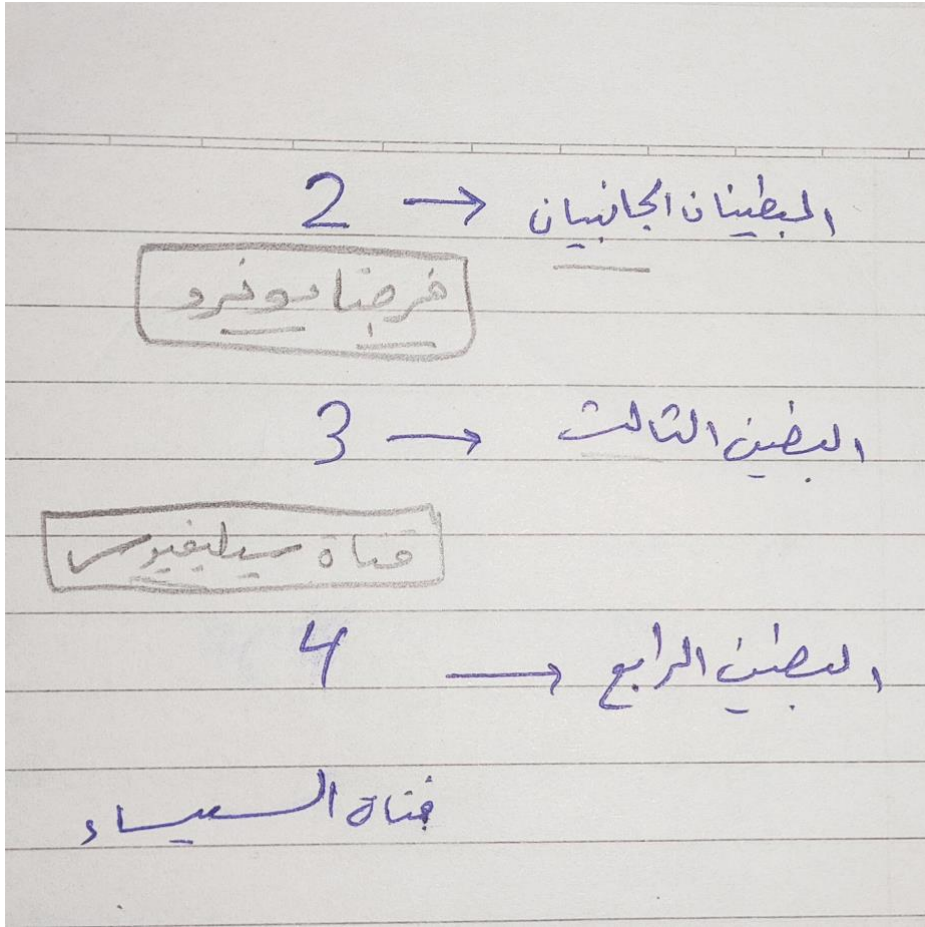 البطينان الجانبيان → 2
فرضتا مونرو
البطين الثالث → 3
قناة سيلفيوس
البطين الرابع → 4
قناة السيساء